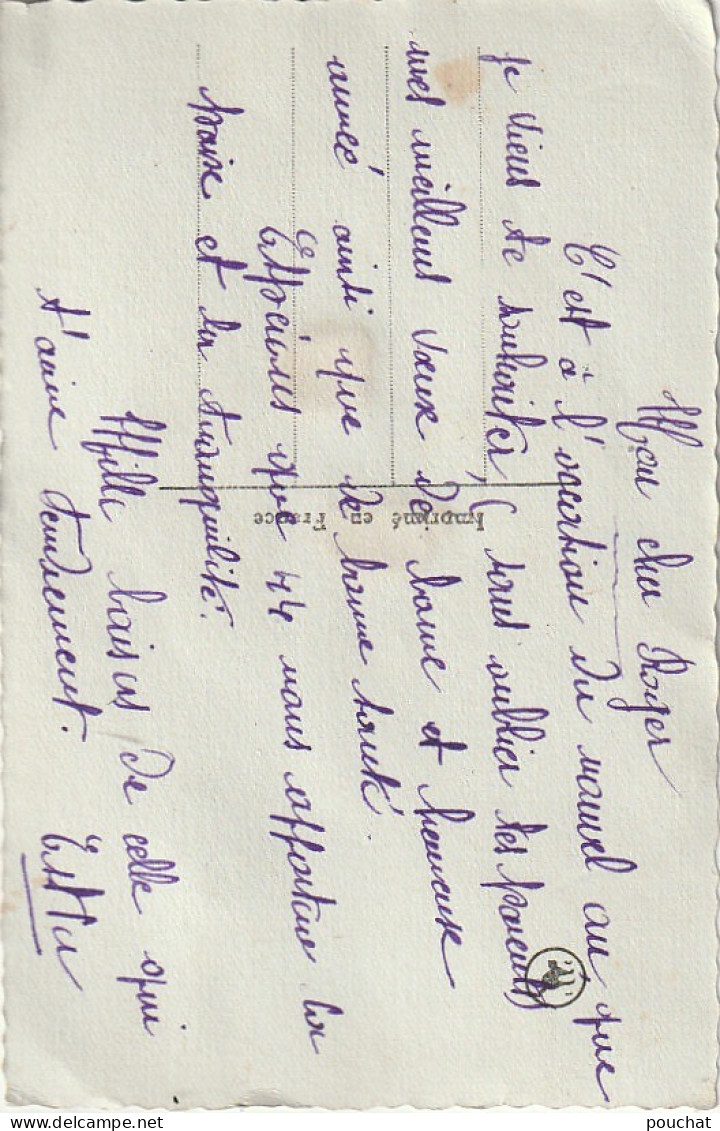 Mon cher Roger
C'est à l'occasion du nouvel an que
je viens te souhaiter, (sans oublier tes parents)
mes meilleurs vœux de bonne et heureuse
année ainsi que de bonne santé.
Espérons que 44 nous apportera la
paix et la tranquilité.
Mille baisers de celle qui
t'aime tendrement.
Imprimé en France
pouchat